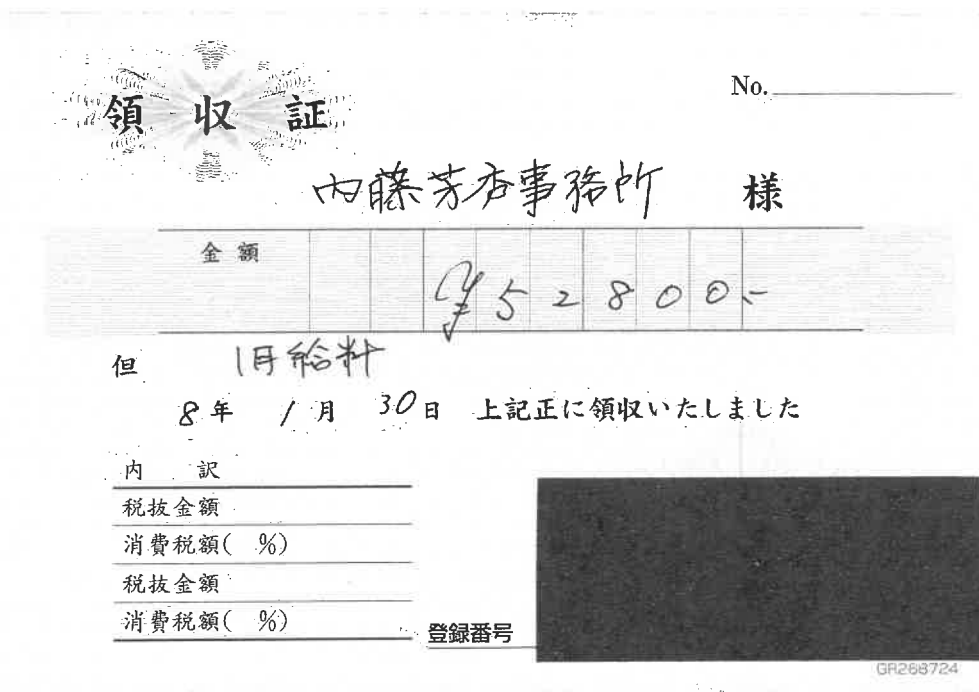 領収証
No.
内藤芳香事務所 様
金額 ¥52800.-
但 1月給料
8年 1月 30日 上記正に領収いたしました
内訳
税抜金額
消費税額( %)
税抜金額
消費税額( %)
登録番号
GR268724